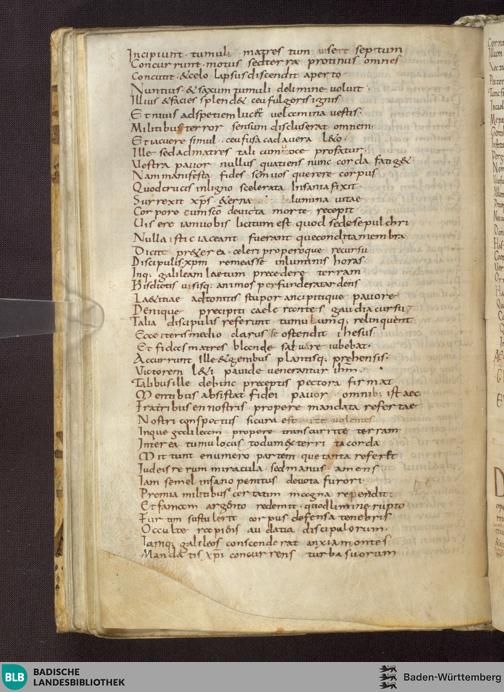 Incipiunt tumuli matres tum visere septum
Concurrunt motus sed terra protinus omnes
Concutit & celo lapsus discendit aperto
Nuntius & saxum tumuli delimine volvit
Illius & facies splend& ceu fulgoris ignis
Et nivis adspetiem luc& vel comnia vestis
Militibus terror sensum discluserat omnem
Et iacuere simul ceu fusa cadavera l&o
Ille sed ad matres tali cum voce profatur
Vestra pavor nullus quatiens nunc corda fatig&
Nam manifesta fides scm vos querere corpus
Quod crucis inligno scelerata Insania fixit
Surrexit xps & erna lumina vitae
Corpore cum sco devicta morte recepit
Visere iam vobis licitum est quod sede sepulchri
Nulla istic iaceant fuerant que condita membra
Dicite pr&erea celeri properoque recursu
Discipulis xpm remeasse inluminis horas
Inq. galileam laetum precedere terram
His dictis visisq. animos perfunderat ardens
La&itiae adtonitis stupor ancipitique pavore
Denique precipiti caele rcontes gaudia cursu
Talia discipulis referunt tumulumq. relinquent
Ecce iteris medio clarus se ostendit ihesus
Et fidas matres blande salvere iubebat
Accurrunt Ille & genibus plantisq. prehensis
Victorem l&i pavide venerantur ihm
Talibus ille dehinc preceptis pectora firmat
Mentibus absistat fidei pavor omnibus istaec
Fratribus en nostris propere mandata refertae
Nostri conspectus si cura est visere volentes
Inque galileam propere transcurrite terram
Interea tumulocus todum & terri ta corda
Mittunt e numero partem que tanta refert
Iudeis rerum miracula sed manus amens
Iam semel insano penitus devota furori
Premia militibus certatim magna rependit
Et famam argento redemit quod limine rupto
Furtim sustulerit corpus defensa tenebris
Occulte rapiens audatia discipulorum
Iamq. galileos conscenderat anxia montes
Mandatis xpi concurrens turba suorum
BLB
BADISCHE
LANDESBIBLIOTHEK
Baden-Württemberg